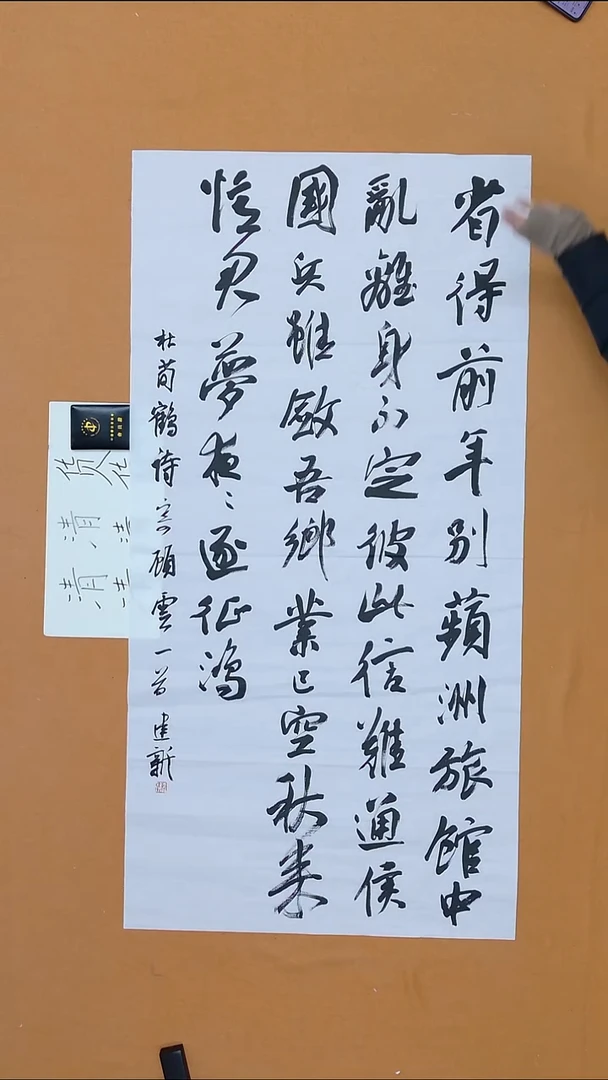 省得前年别蘋洲旅館中
亂離身不定彼此信難通侯
國兵雖斂吾鄉業已空秋來
憶君夢夜々逐征鴻
杜荀鶴詩寄顧雲一首 建新
货
清
清